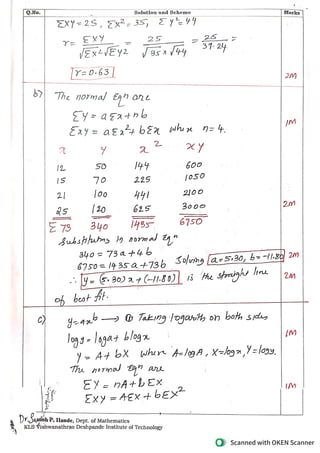 Q.No. Solution and Scheme Marks
ΣXY = 25, Σx² = 35, Σy² = 44
r = Σxy / √Σx² √Σy² = 25 / √35 × √44 = 25 / 39.24
r = 0.63 2M
b) The normal Eqn are
Σy = aΣx + nb
Σxy = aΣx² + bΣx when n = 4. 1M
x y x² xy
12 50 144 600
15 70 225 1050
21 100 441 2100
25 120 625 3000 2M
Σ 73 340 1435 6750
Substituting in normal Eqn
340 = 73a + 4b
6750 = 1435a + 73b Solving a = 5.30, b = -11.80 2M
∴ y = (5.30)x + (-11.80) is the straight line 2M
of best fit.
c) y = ax^b → ① Taking logarith on both sides
log y = log a + b log x 1M
Y = A + bX when A = log A, X = log x, Y = log y.
The normal Eqn are
ΣY = nA + bΣX 1M
ΣXY = AΣX + bΣX²
P. Hande, Dept. of Mathematics
KLS Vishwanathrao Deshpande Institute of Technology
Scanned with OKEN Scanner